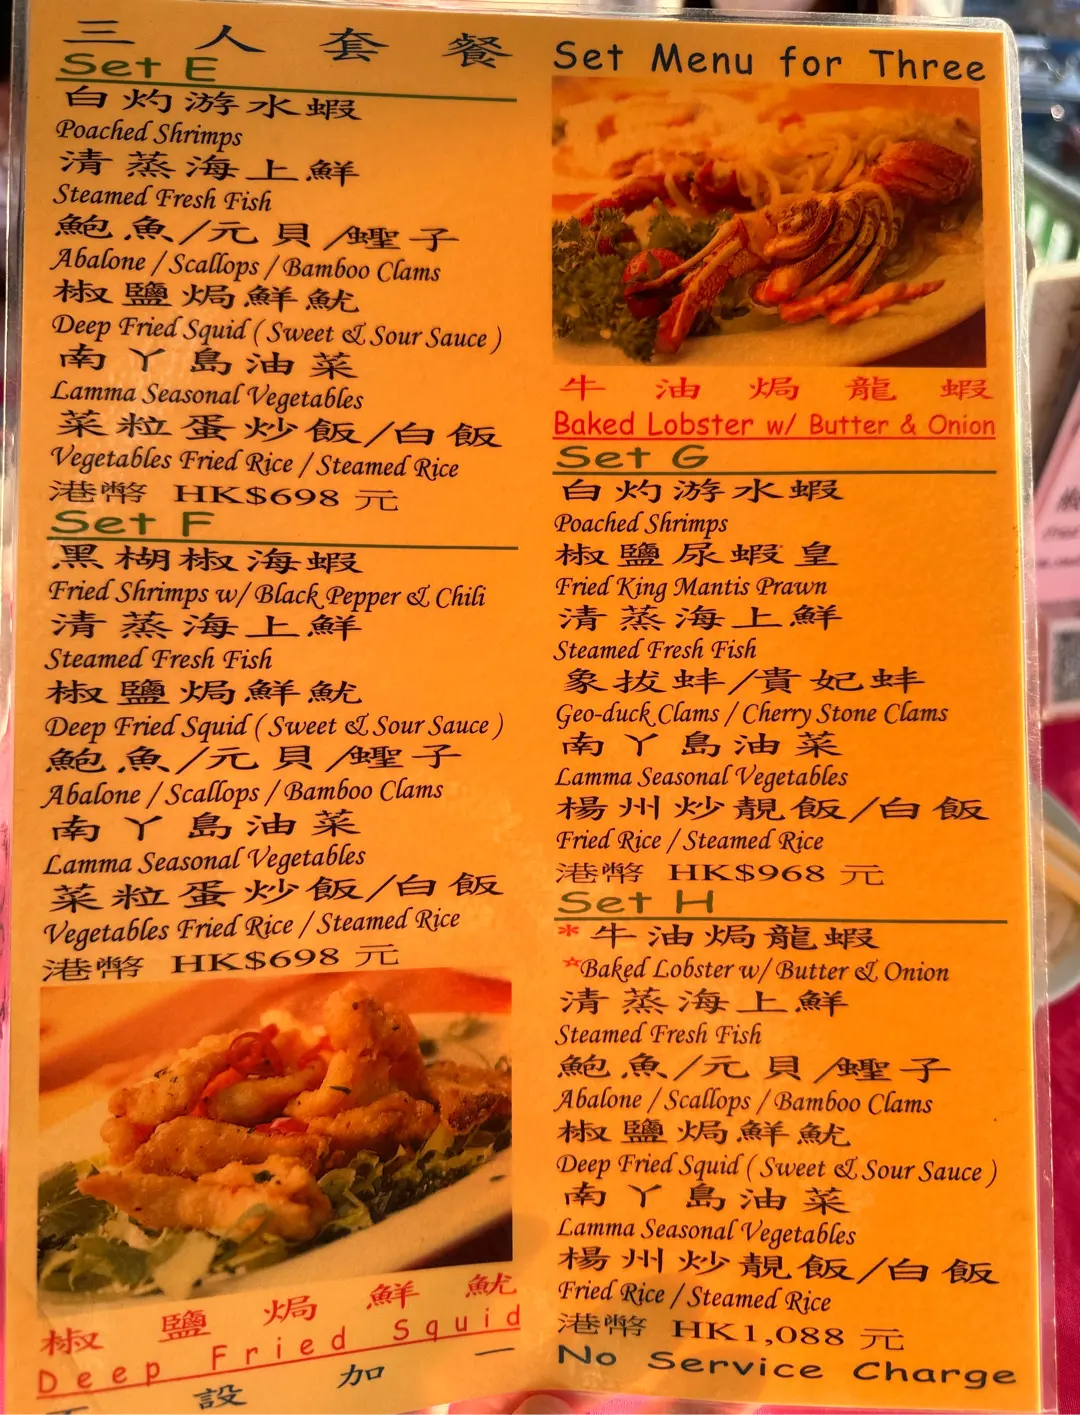 三人套餐
Set E
白灼游水蝦
Poached Shrimps
清蒸海上鮮
Steamed Fresh Fish
鮑魚/元貝/蟶子
Abalone / Scallops / Bamboo Clams
椒鹽焗鮮魷
Deep Fried Squid ( Sweet & Sour Sauce )
南丫島油菜
Lamma Seasonal Vegetables
菜粒蛋炒飯/白飯
Vegetables Fried Rice / Steamed Rice
港幣 HK$698 元
Set F
黑椒椒海蝦
Fried Shrimps w/ Black Pepper & Chili
清蒸海上鮮
Steamed Fresh Fish
椒鹽焗鮮魷
Deep Fried Squid ( Sweet & Sour Sauce )
鮑魚/元貝/蟶子
Abalone / Scallops / Bamboo Clams
南丫島油菜
Lamma Seasonal Vegetables
菜粒蛋炒飯/白飯
Vegetables Fried Rice / Steamed Rice
港幣 HK$698 元
椒鹽焗鮮魷
Deep Fried Squid
設加一
Set Menu for Three
牛油焗龍蝦
Baked Lobster w/ Butter & Onion
Set G
白灼游水蝦
Poached Shrimps
椒鹽尿蝦皇
Fried King Mantis Prawn
清蒸海上鮮
Steamed Fresh Fish
象拔蚌/貴妃蚌
Geo-duck Clams / Cherry Stone Clams
南丫島油菜
Lamma Seasonal Vegetables
楊州炒靚飯/白飯
Fried Rice / Steamed Rice
港幣 HK$968 元
Set H
*牛油焗龍蝦
*Baked Lobster w/ Butter & Onion
清蒸海上鮮
Steamed Fresh Fish
鮑魚/元貝/蟶子
Abalone / Scallops / Bamboo Clams
椒鹽焗鮮魷
Deep Fried Squid ( Sweet & Sour Sauce )
南丫島油菜
Lamma Seasonal Vegetables
楊州炒靚飯/白飯
Fried Rice / Steamed Rice
港幣 HK1,088 元
No Service Charge